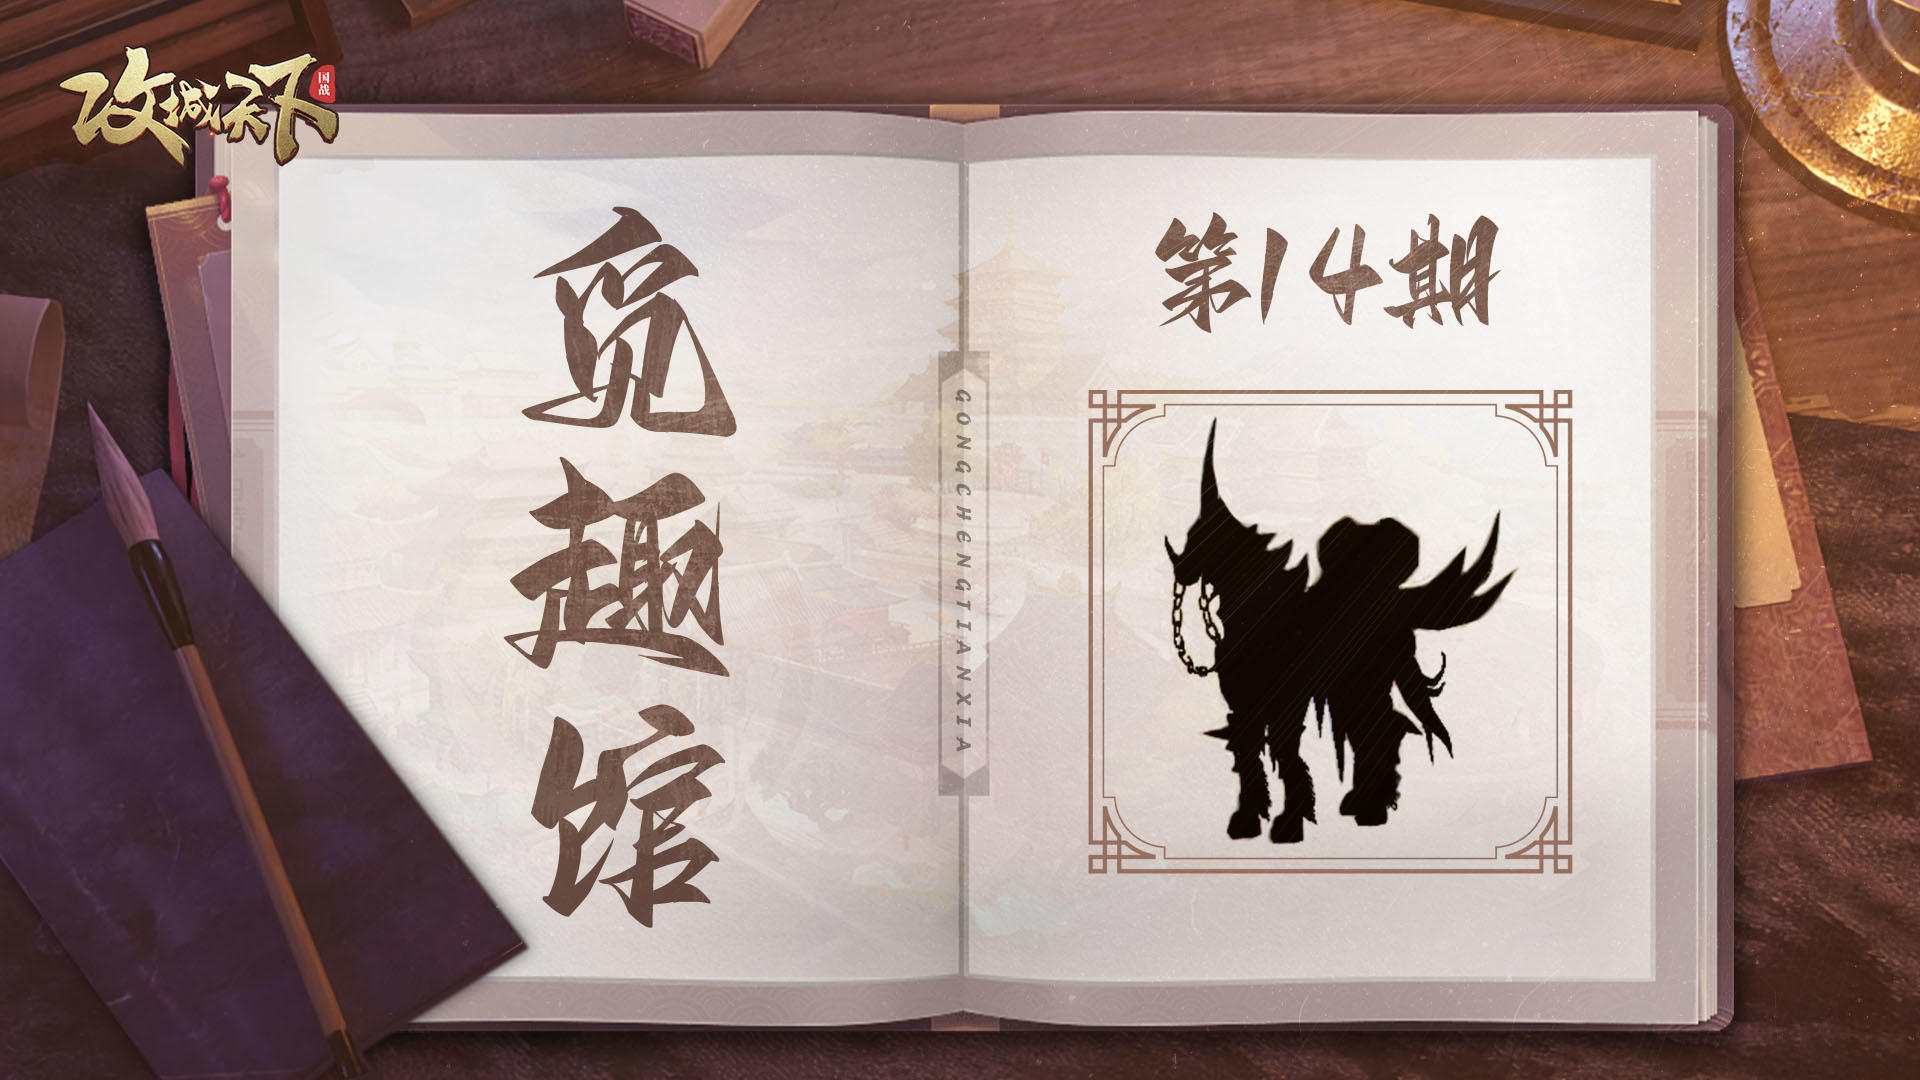 攻城天下
国战
觅趣馆
第14期
GONGCHENGTIANXIA